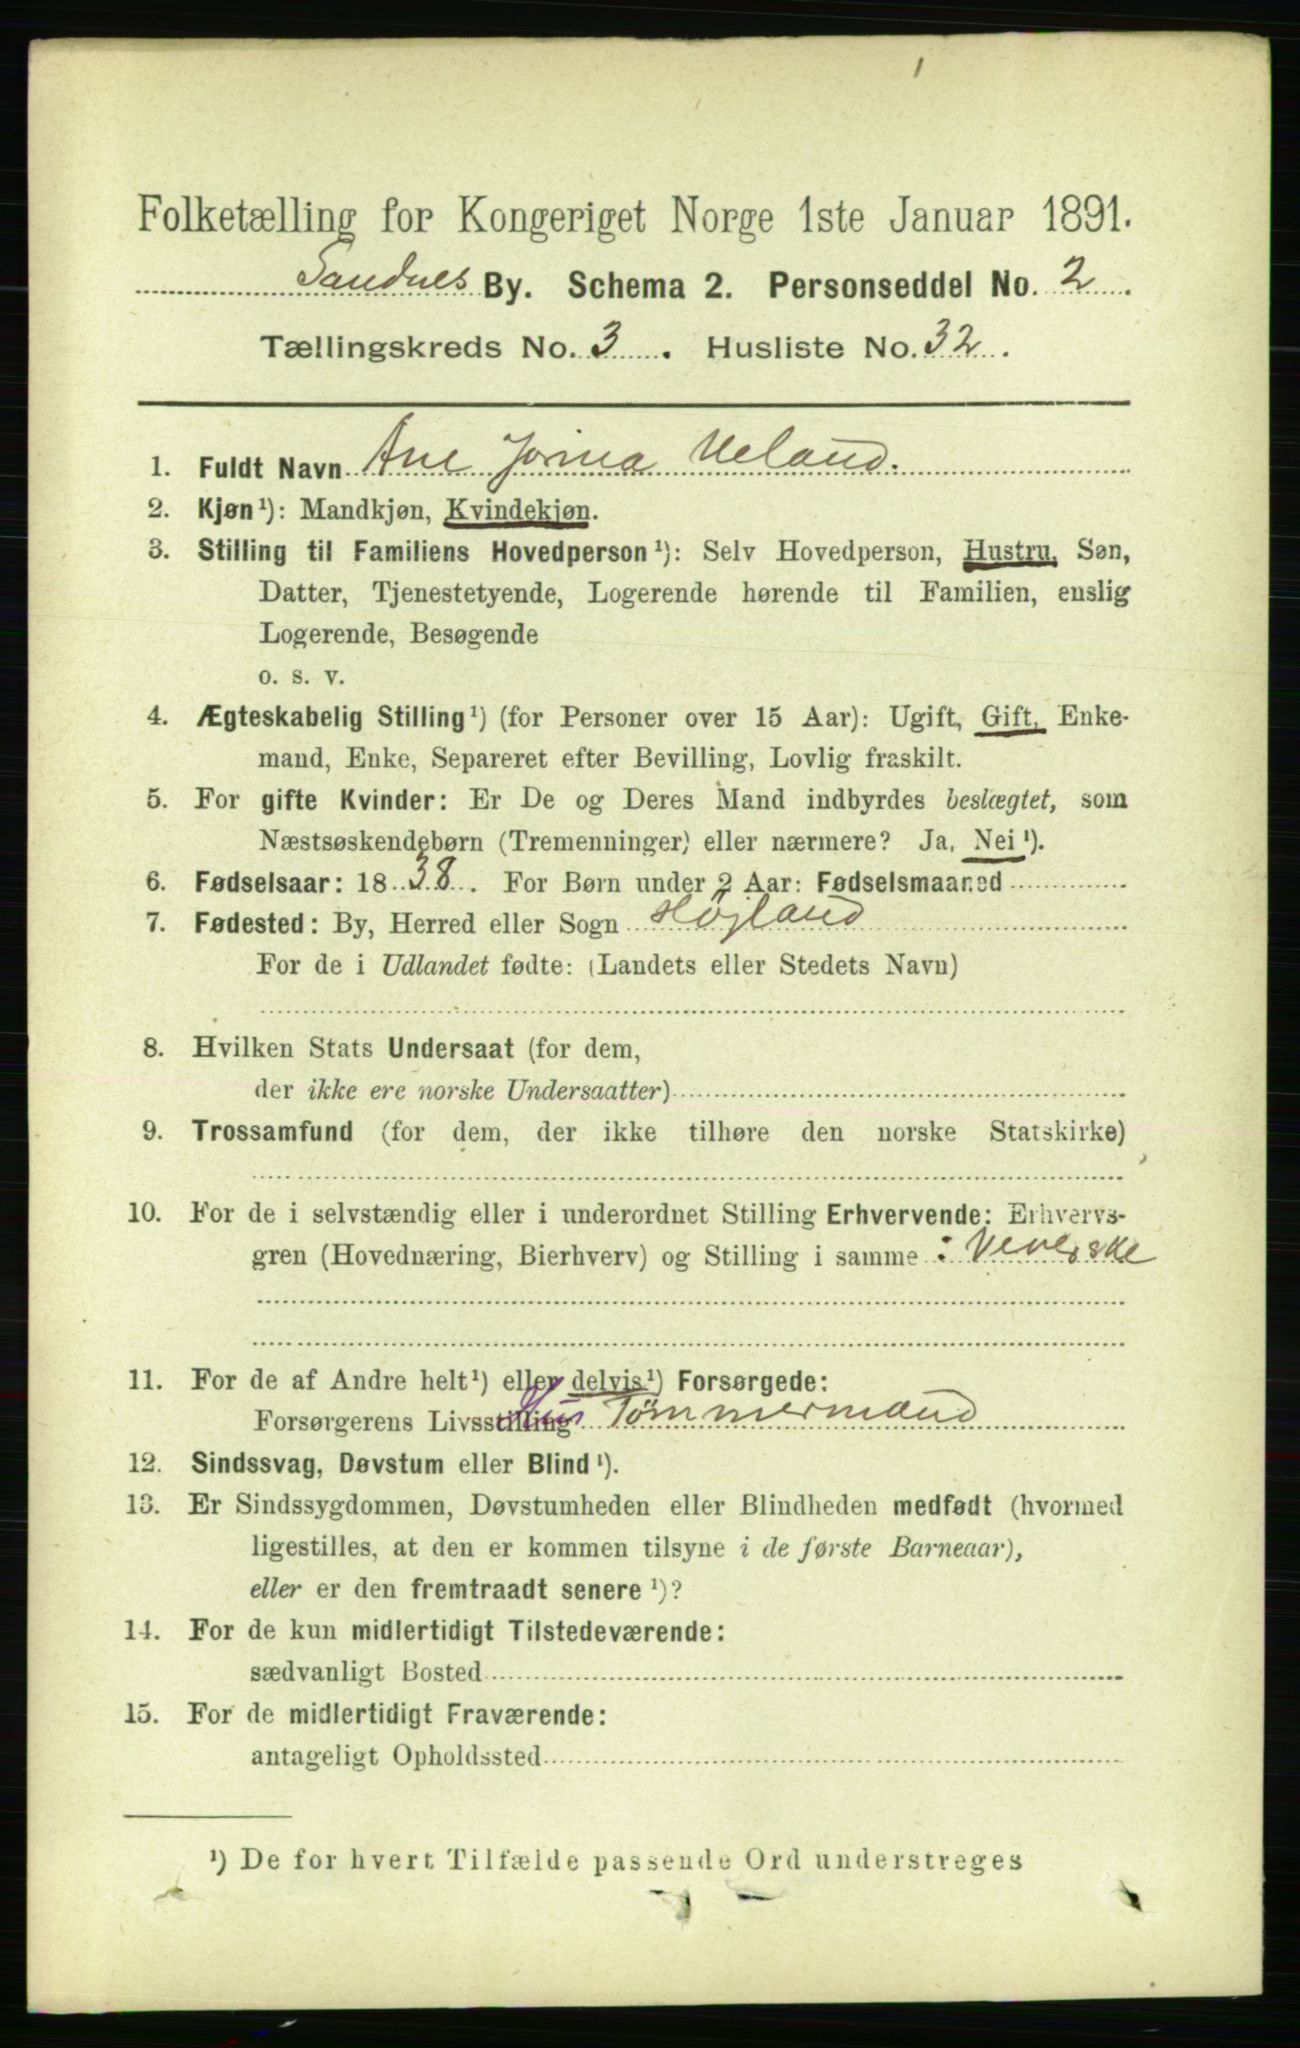 Folketælling for Kongeriget Norge 1ste Januar 1891.
Sandnes By. Schema 2. Personseddel No. 2.
Tællingskreds No. 3. Husliste No. 32.
1. Fuldt Navn Ane Jorina Veland.
2. Kjøn¹): Mandkjøn, Kvindekjøn.
3. Stilling til Familiens Hovedperson¹): Selv Hovedperson, Hustru, Søn,
Datter, Tjenestetyende, Logerende hørende til Familien, enslig
Logerende, Besøgende
o. s. v.
4. Ægteskabelig Stilling¹) (for Personer over 15 Aar): Ugift, Gift, Enke-
mand, Enke, Separeret efter Bevilling, Lovlig fraskilt.
5. For gifte Kvinder: Er De og Deres Mand indbyrdes beslægtet, som
Næstsøskendebørn (Tremenninger) eller nærmere? Ja, Nei¹).
6. Fødselsaar: 1838. For Børn under 2 Aar: Fødselsmaaned
7. Fødested: By, Herred eller Sogn Højland
For de i Udlandet fødte: (Landets eller Stedets Navn)
8. Hvilken Stats Undersaat (for dem,
der ikke ere norske Undersaatter)
9. Trossamfund (for dem, der ikke tilhøre den norske Statskirke)
10. For de i selvstændig eller i underordnet Stilling Erhvervende: Erhvervs-
gren (Hovednæring, Bierhverv) og Stilling i samme : Veverske
11. For de af Andre helt¹) eller delvis¹) Forsørgede:
Forsørgerens Livsstilling Hus Tømmermand
12. Sindssvag, Døvstum eller Blind¹).
13. Er Sindssygdommen, Døvstumheden eller Blindheden medfødt (hvormed
ligestilles, at den er kommen tilsyne i de første Barneaar),
eller er den fremtraadt senere¹)?
14. For de kun midlertidigt Tilstedeværende:
sædvanligt Bosted
15. For de midlertidigt Fraværende:
antageligt Opholdssted
¹) De for hvert Tilfælde passende Ord understreges